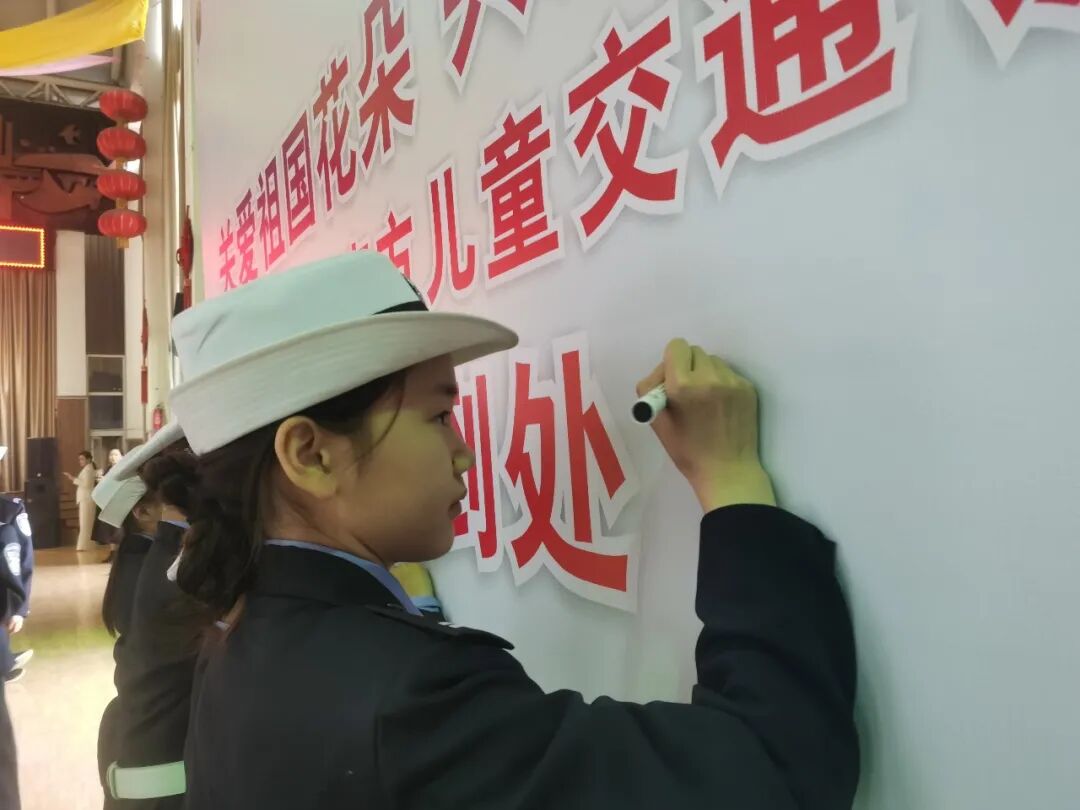 关爱祖国花朵
儿童交通
到处